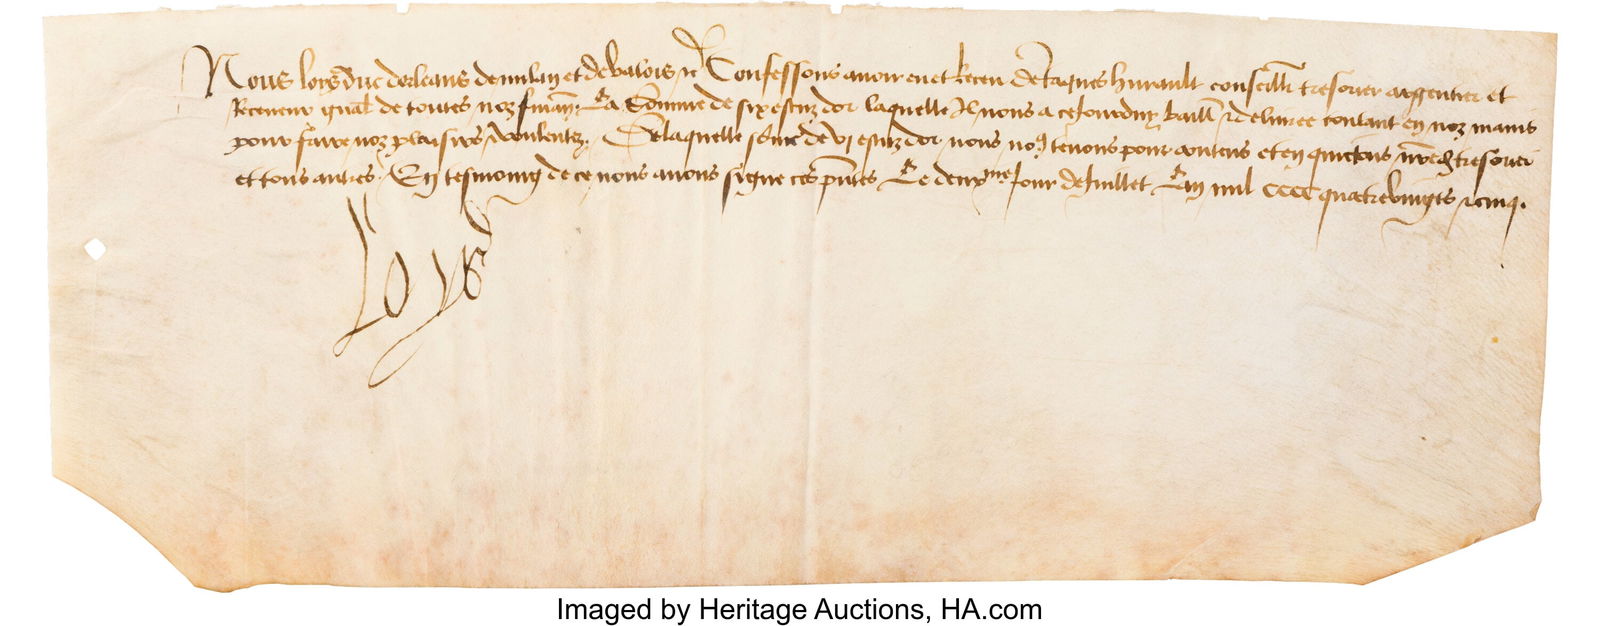 Nous loys duc dorleans de millan et de valois &c Confessons avoir eu et Receu de Jaques hurault conseillr tresorier argentier et
Receveur gnal de toutes noz finan. La Somme de six escuz dor laquelle Il nous a ce Jourduy baille & delivree contant en noz mains
pour faire noz plaisirs & voulentez. De laquelle some de vi escuz dor nous no9 tenons pour contens et en quictons nred tresorier
et tous autres. En tesmoing de ce nous avons signe ces pntes Le deuxme Jour de Juillet Lan mil CCCC quatrevingts & cinq.
Loys
Imaged by Heritage Auctions, HA.com